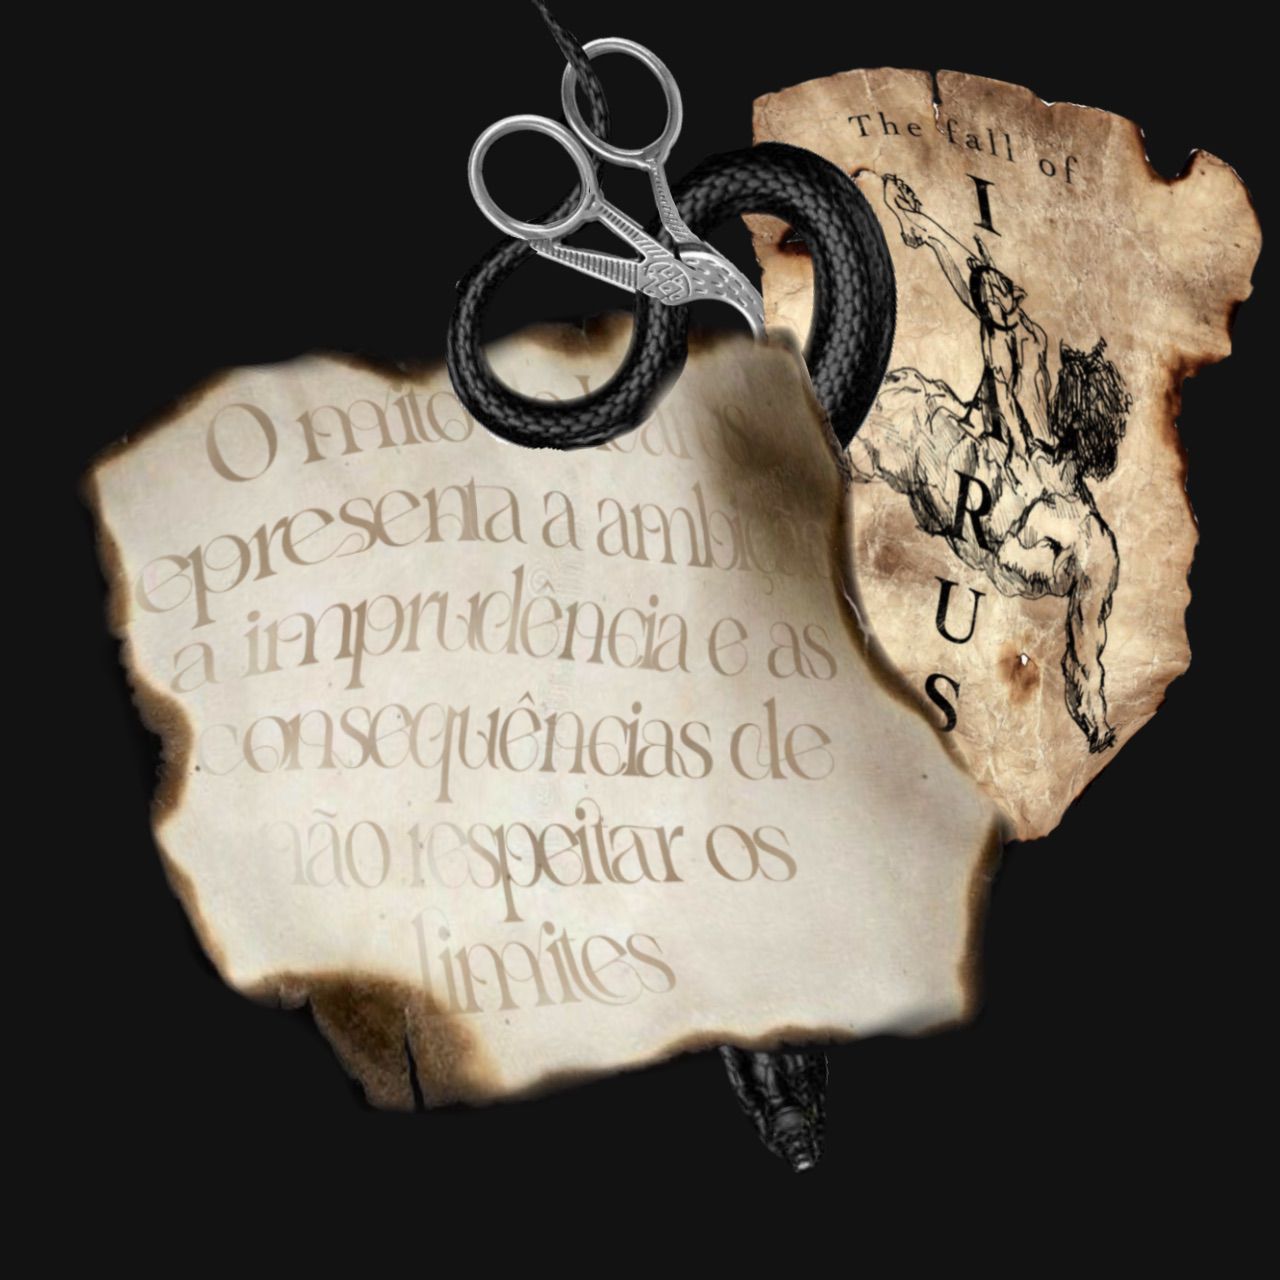 O mito
epresenta a ambição
a imprudência e as
consequências de
não respeitar os
limites
The fall of
ICARUS